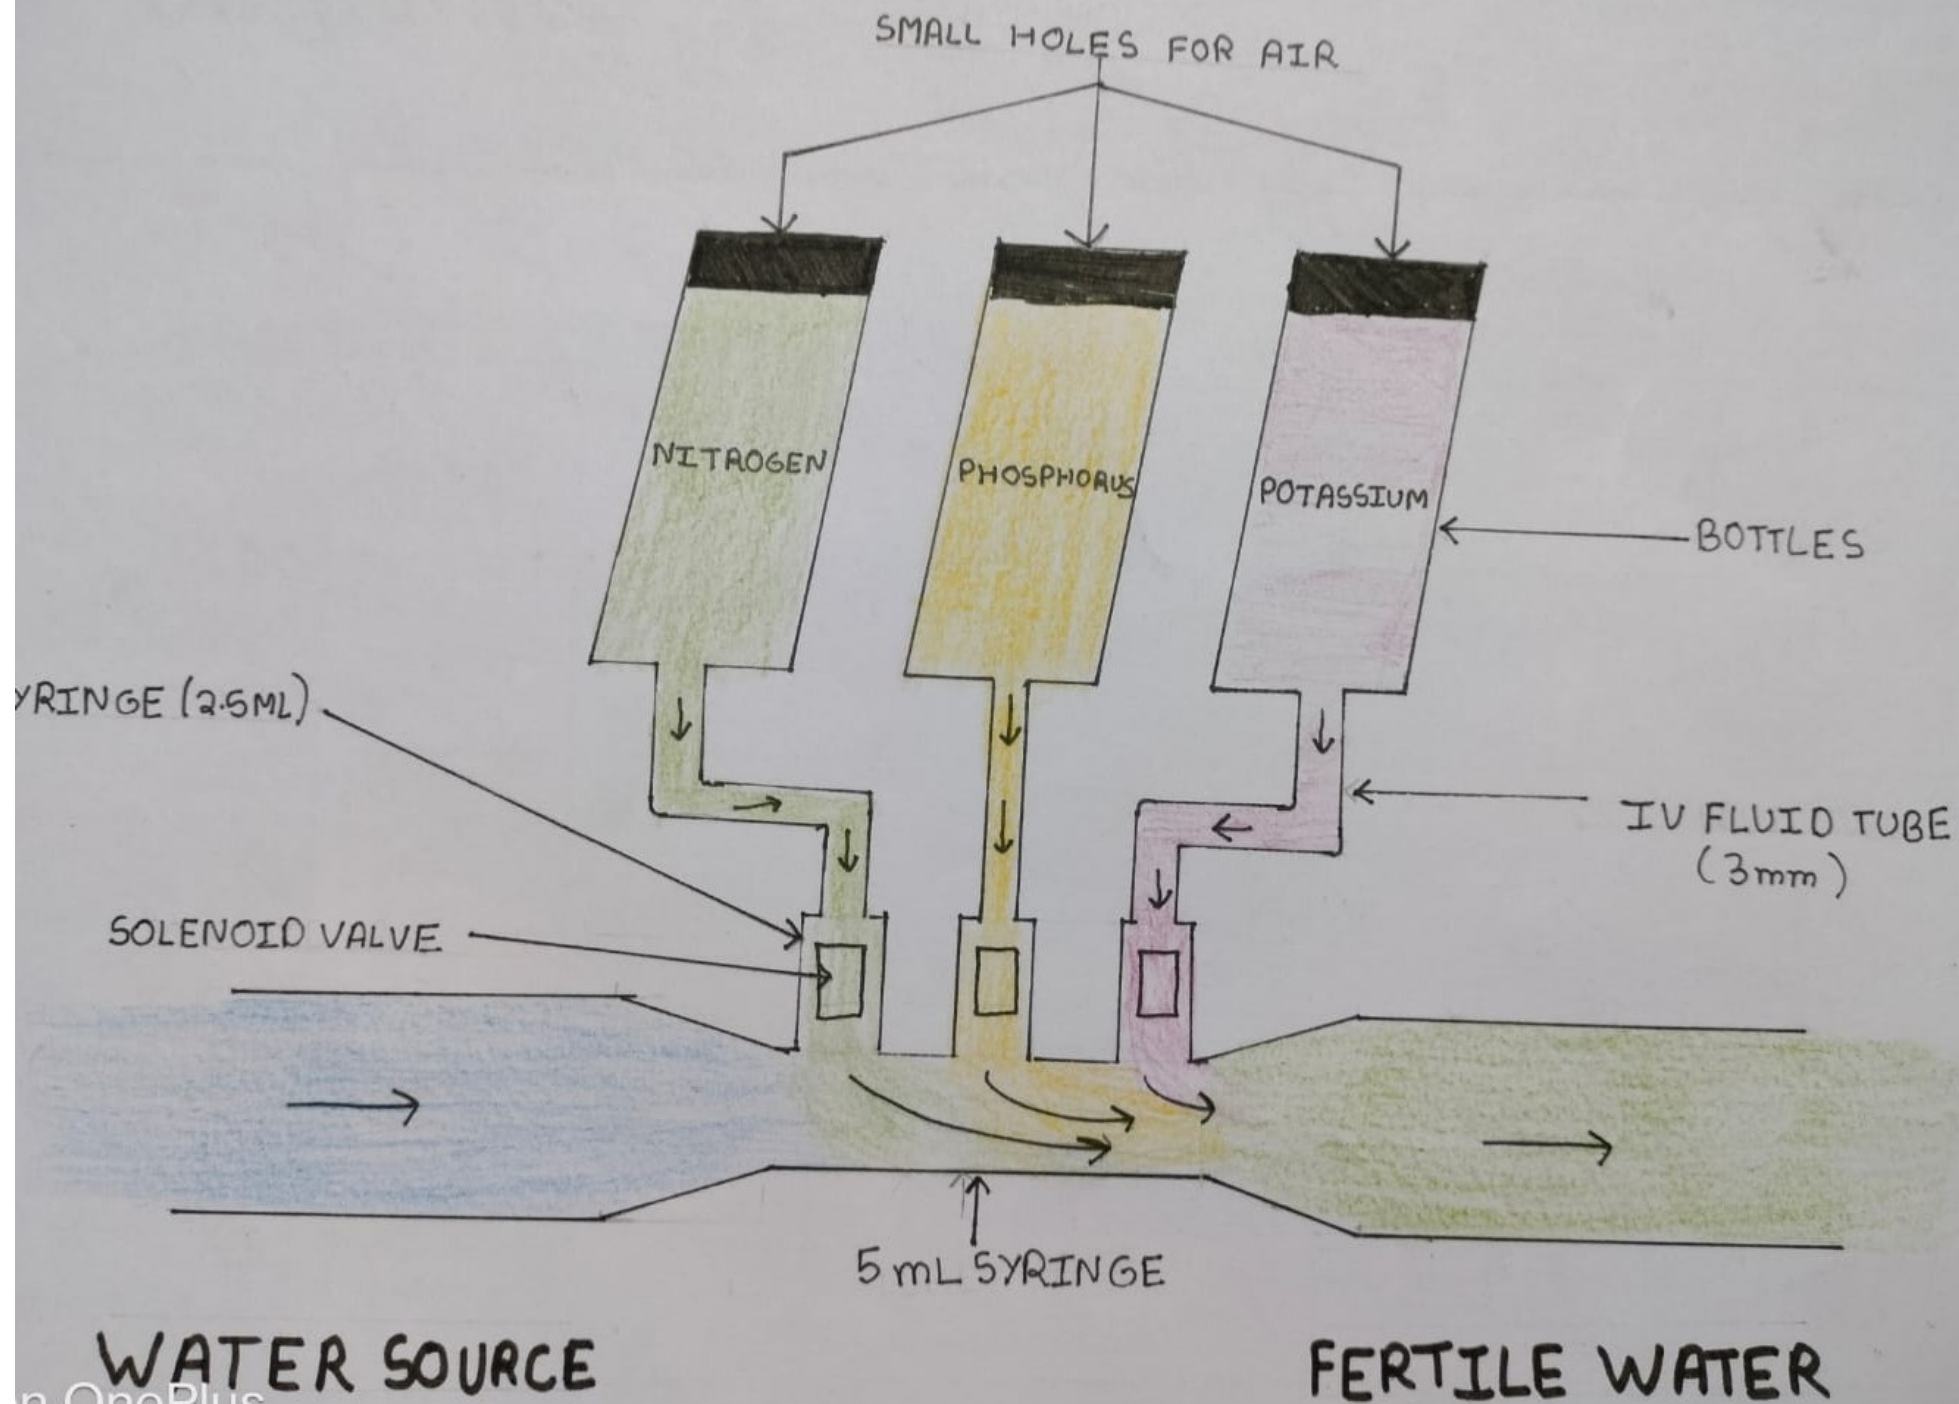 SMALL HOLES FOR AIR
NITROGEN
PHOSPHORUS
POTASSIUM
BOTTLES
YRINGE (2.5ML)
IV FLUID TUBE
(3mm)
SOLENOID VALVE
5 mL SYRINGE
WATER SOURCE
FERTILE WATER
n OnePlus